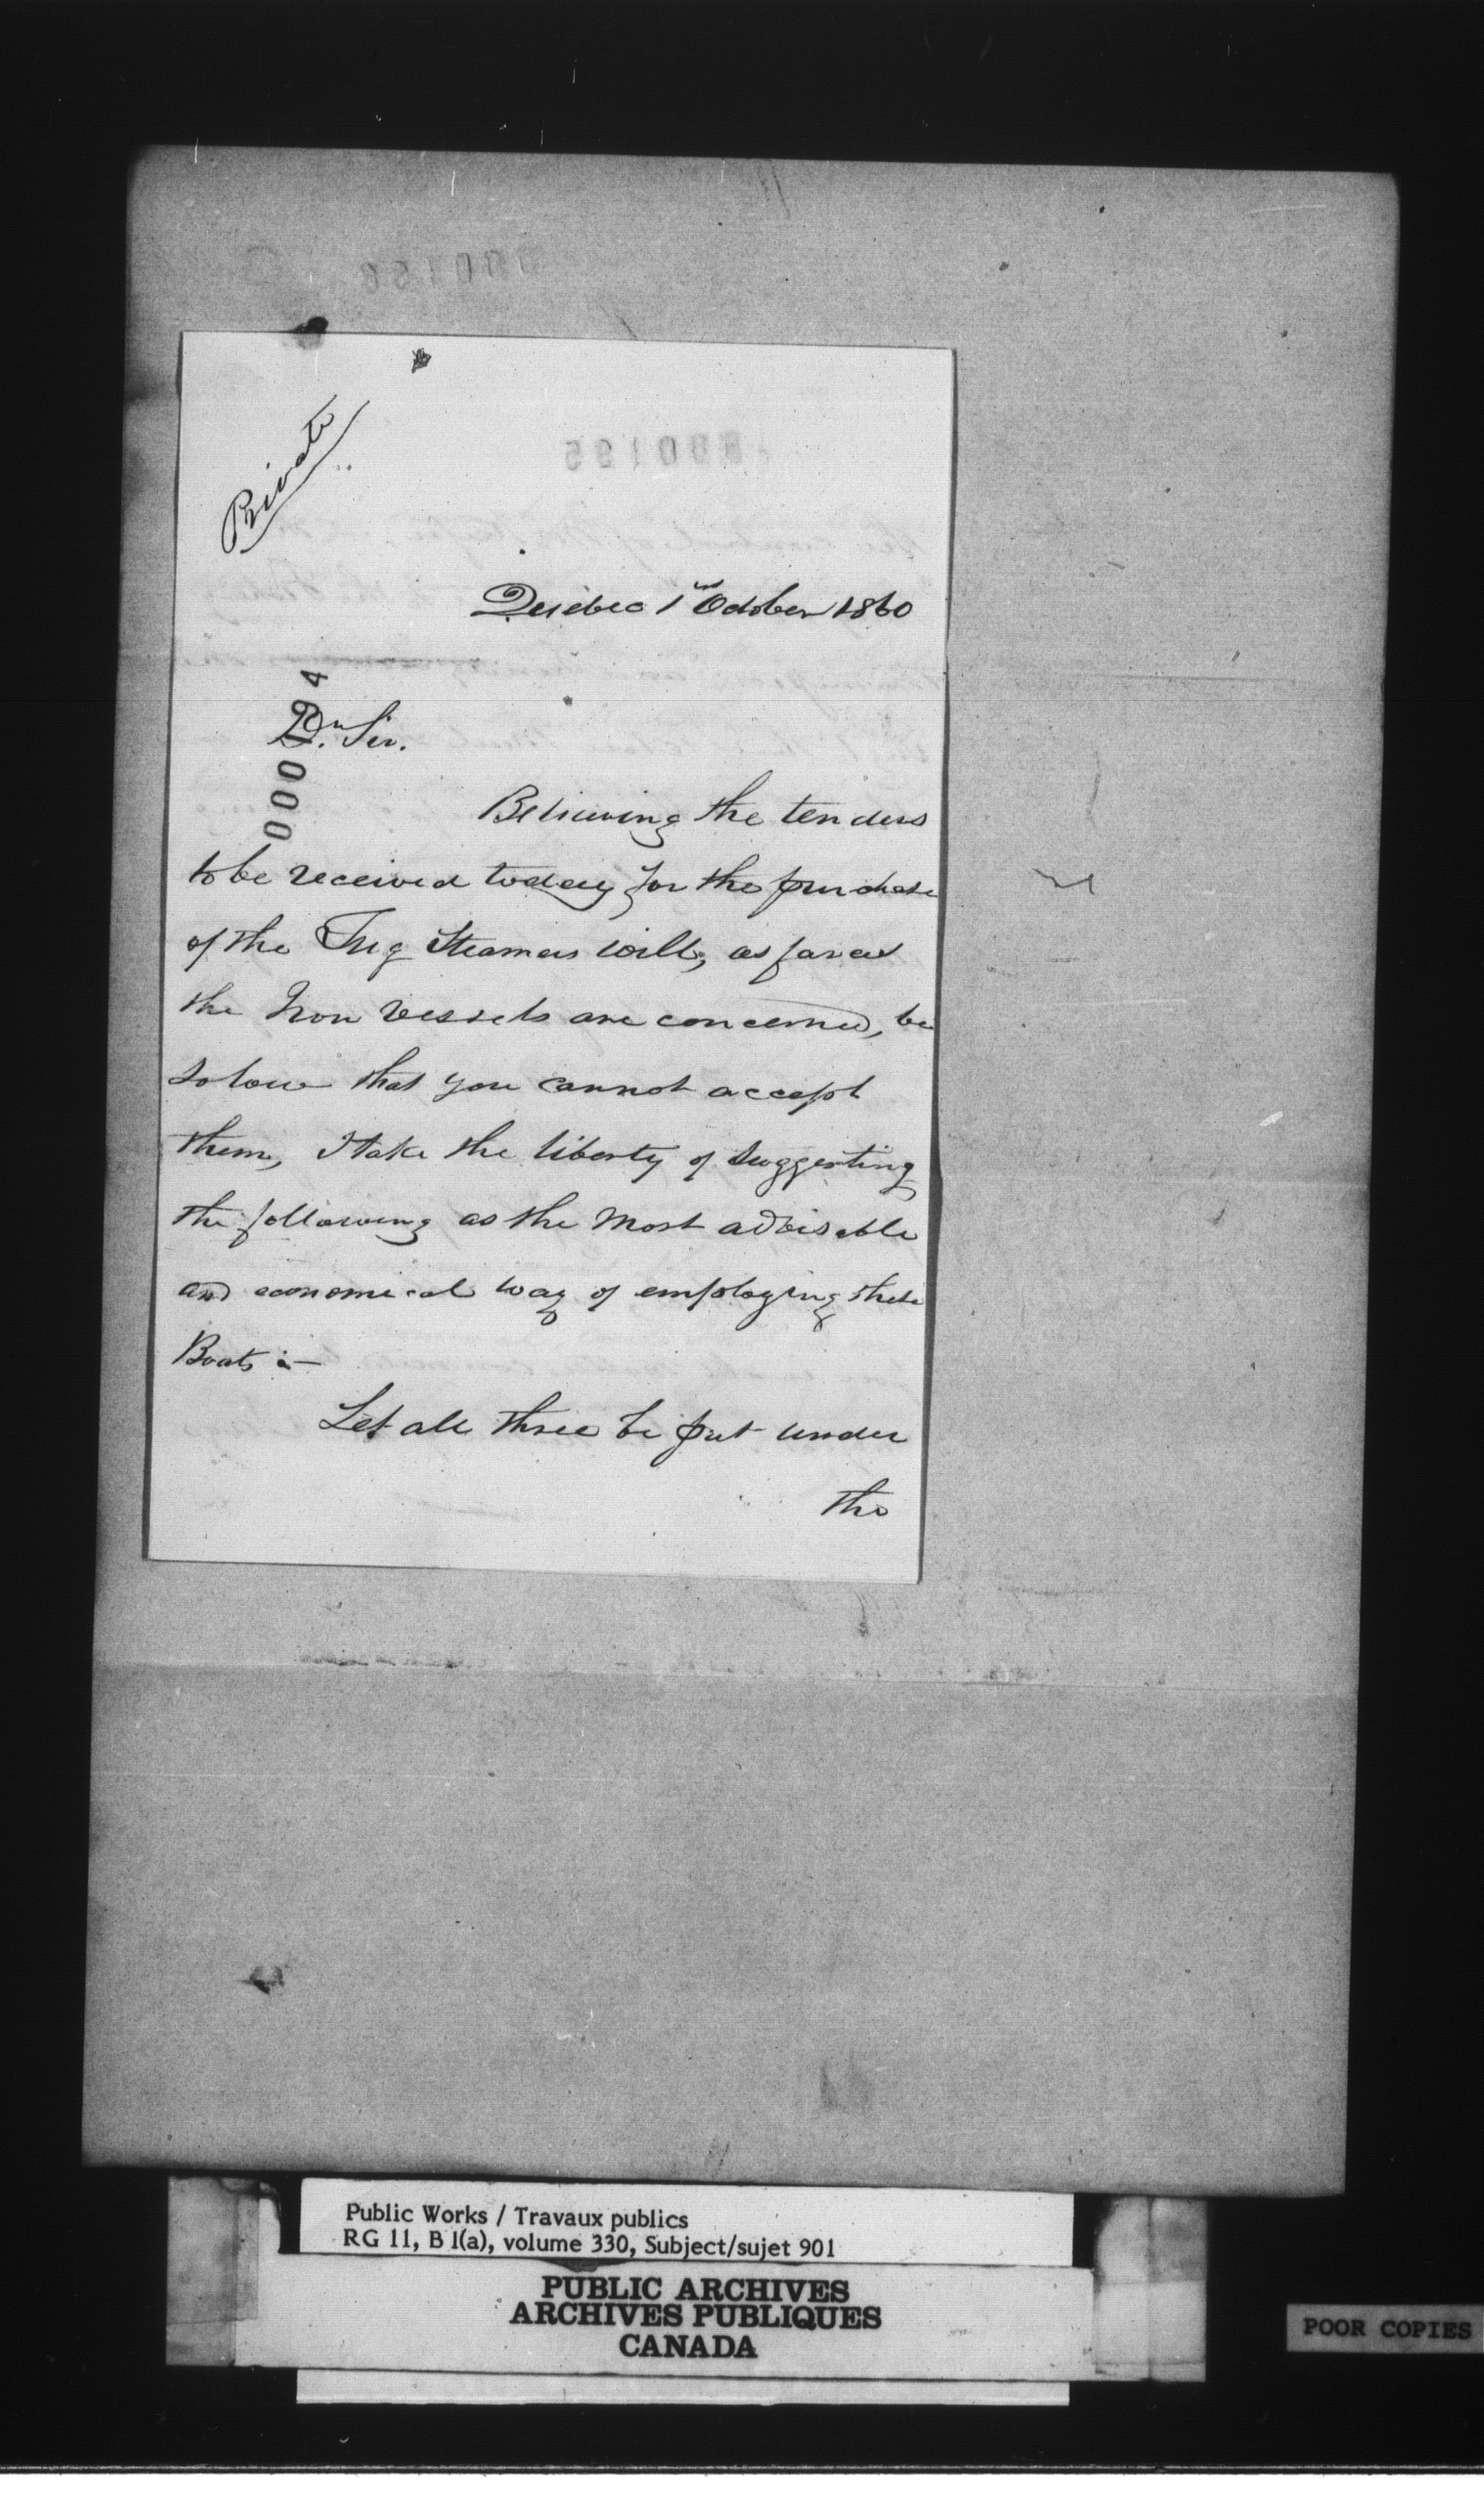 Private
Quebec 1st October 1860
000194
Dr. Sir.
Believing the tenders
to be received today for the purchase
of the Tug Steamers will, as far as
the Iron Vessels are concerned, be
so low that you cannot accept
them, I take the liberty of suggesting
the following as the most advisable
and economical way of employing these
Boats :—
Let all three be put under
the
Public Works / Travaux publics
RG 11, B 1(a), volume 330, Subject/sujet 901
PUBLIC ARCHIVES
ARCHIVES PUBLIQUES
CANADA
POOR COPIES